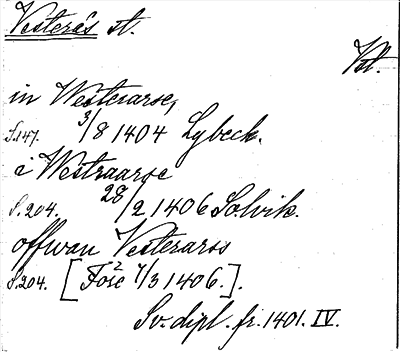 Vesterås st.
Vstl.
in Westerarse,
S.147. 3/8 1404 Lybeck.
i Westraarae
S.204. 28/2 1406 Solvik.
offwan Vesterarss
S.204. [ 2 7/3 1406.].
Sv. dipl. fr. 1401. IV.